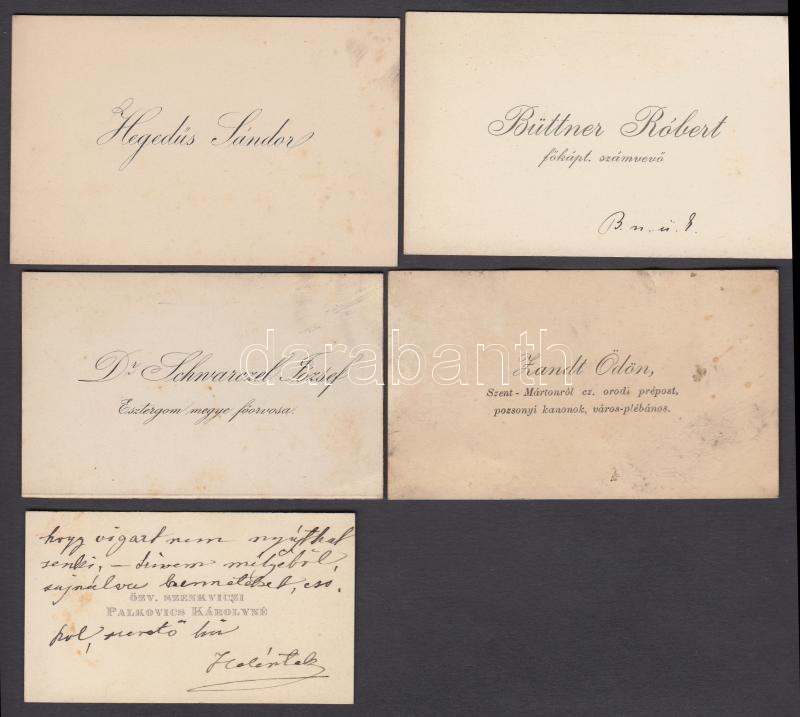 Hegedűs Sándor
Büttner Róbert
főkápt. számvevő
B. n. ú. é.
Dr Schwarczel József
Esztergom megye főorvosa.
Zandt Ödön,
Szent-Mártonról cz. orodi prépost,
pozsonyi kanonok, város-plébános.
darabanth
hogy vigart nem nyújthat
senki, – szívem mélyéből,
sajnálva benneteket, cso.
ÖZV. SZENKVICZI
PALKOVICS KÁROLYNÉ
kol, szerető hű